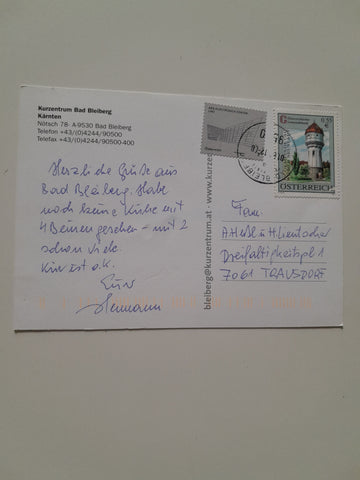 Kurzentrum Bad Bleiberg
Kärnten
Nötsch 78· A-9530 Bad Bleiberg
Telefon +43/(0)4244/90500
Telefax +43/(0)4244/90500-400
Herzliche Grüße aus
Bad Bleiberg. Habe
noch keine Kühe mit
4 Beinen gesehen - mit 2
schon viele.
Kur ist o.k.
Euer
Hermann
bleiberg@kurzentrum.at www.kurzentrum
0,55
ÖSTERREICH
Fam.
A. Heßl u H.
Dreifaltigkeitspl 1
7061 TRAUSDORF